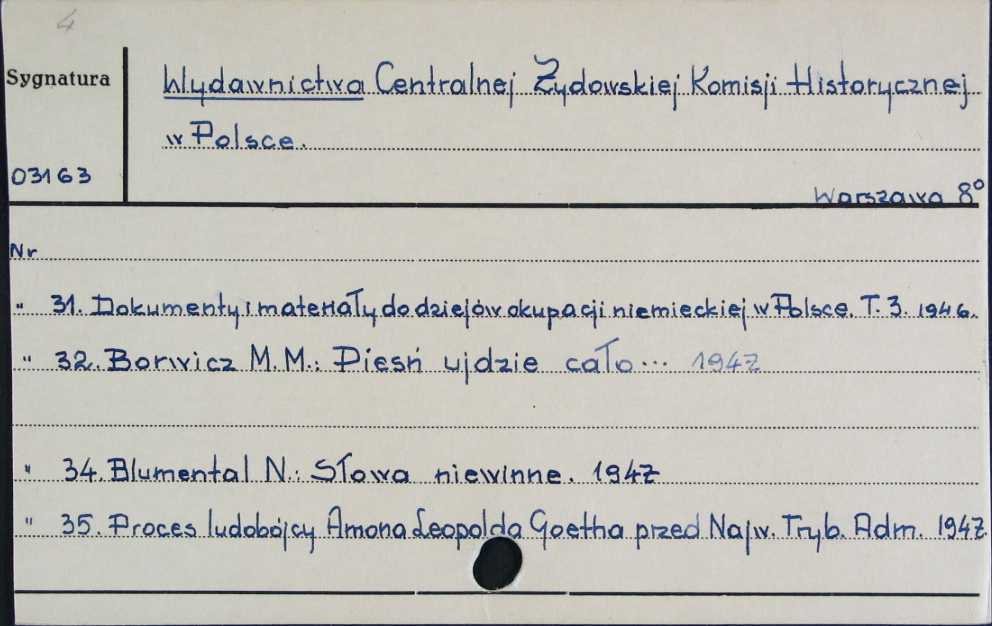 4
Sygnatura
Wydawnictwa Centralnej Żydowskiej Komisji Historycznej
w Polsce.
03163
Warszawa 8°
Nr
" 31. Dokumenty i materiały do dziejów okupacji niemieckiej w Polsce. T. 3. 1946.
" 32. Borwicz M. M.: Pieśń ujdzie cało... 1947
" 34. Blumental N.: Słowa niewinne. 1947
" 35. Proces ludobójcy Amona Leopolda Goetha przed Najw. Tryb. Adm. 1947.